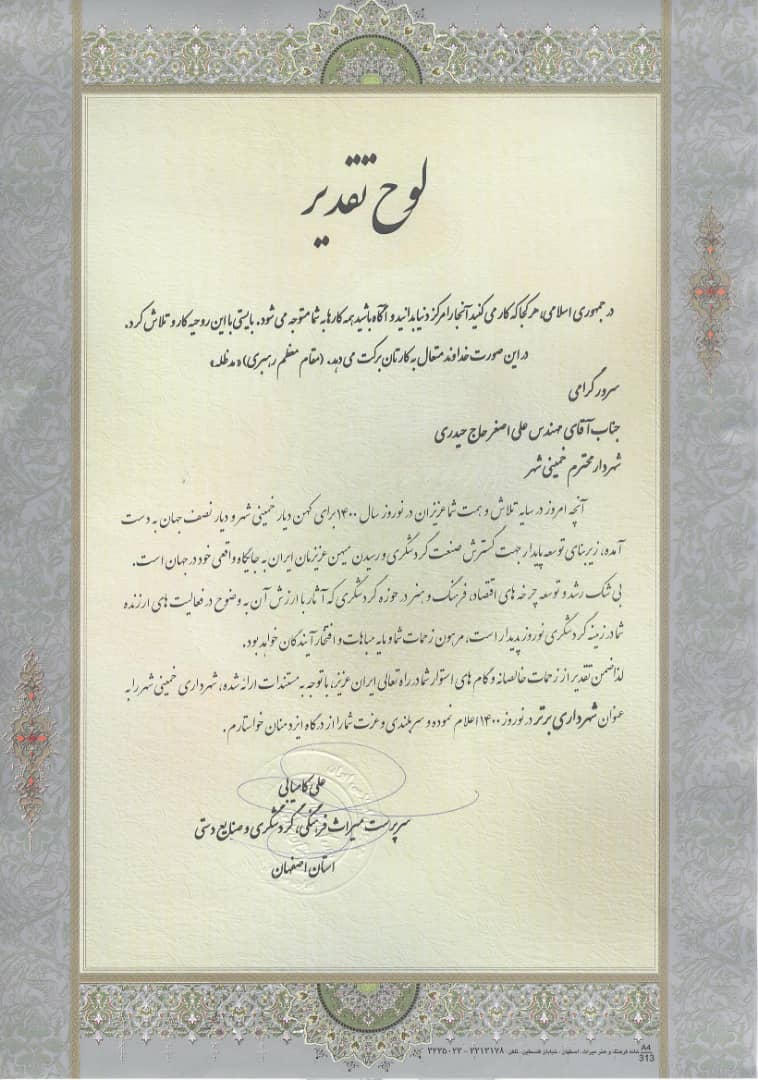 لوح تقدیر
در جمهوری اسلامی، هر کجا که کار می کنید آنجا را مرکز دنیا بدانید و آگاه باشید همه کارها به شما متوجه می شود. بایستی با این روحیه کار و تلاش کرد.
در این صورت خداوند متعال به کارتان برکت می دهد. (مقام معظم رهبری) «مدظله»
سرور گرامی
جناب آقای مهندس علی اصغر حاج حیدری
شهردار محترم خمینی شهر
آنچه امروز در سایه تلاش و همت شما عزیزان در نوروز سال ۱۴۰۰ برای کهن دیار خمینی شهر و دیار نصف جهان به دست
آمده، زیربنای توسعه پایدار جهت گسترش صنعت گردشگری و رسیدن میهن عزیزمان ایران به جایگاه واقعی خود در جهان است.
بی شک رشد و توسعه چرخه های اقتصاد، فرهنگ و هنر در حوزه گردشگری که آثار با ارزش آن به وضوح در فعالیت های ارزنده
شما در زمینه گردشگری نوروز پدیدار است، مرهون زحمات شما و مایه مباهات و افتخار آیندگان خواهد بود.
لذا ضمن تقدیر از زحمات خالصانه و گام های استوار شما در راه تعالی ایران عزیز، با توجه به مستندات ارائه شده، شهرداری خمینی شهر را به
عنوان شهرداری برتر در نوروز ۱۴۰۰ اعلام نموده و سربلندی و عزت شما را از درگاه ایزد منان خواستارم.
علی کامیابی
سرپرست میراث فرهنگی، گردشگری و صنایع دستی
استان اصفهان
خانه فرهنگ و هنر میراث. اصفهان - خیابان فلسطین. تلفن: ۲۲۱۳۱۷۸ - ۲۲۳۵۰۲۳
A4
313